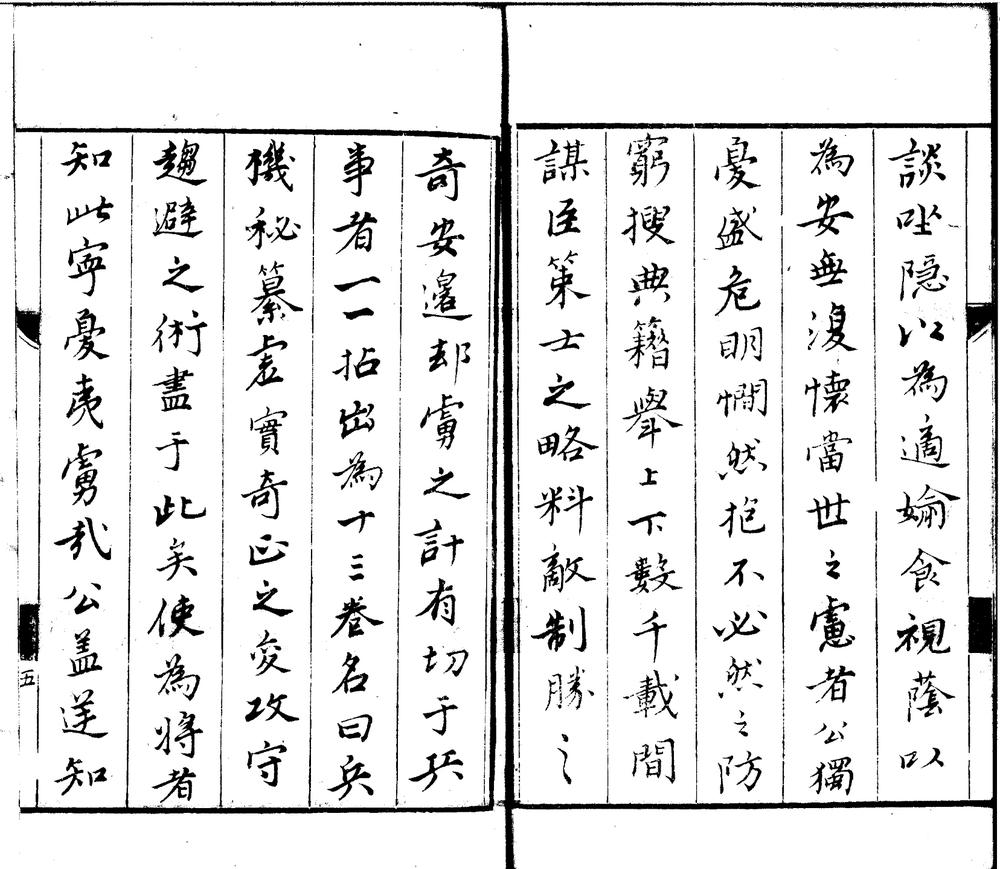 談唑隠以為適婾食視蔭以
為安無復懷當世之慮者公獨
憂盛危明憪然抱不必然之防
窮搜典籍舉上下數千載間
謀臣策士之略料敵制勝之
奇安邊却虜之計有切于兵
事者一一拈出為十三卷名曰兵
機秘纂虛實奇正之変攻守
趨避之術盡于此矣使為將者
知此寧憂夷虜哉公盖逆知
五